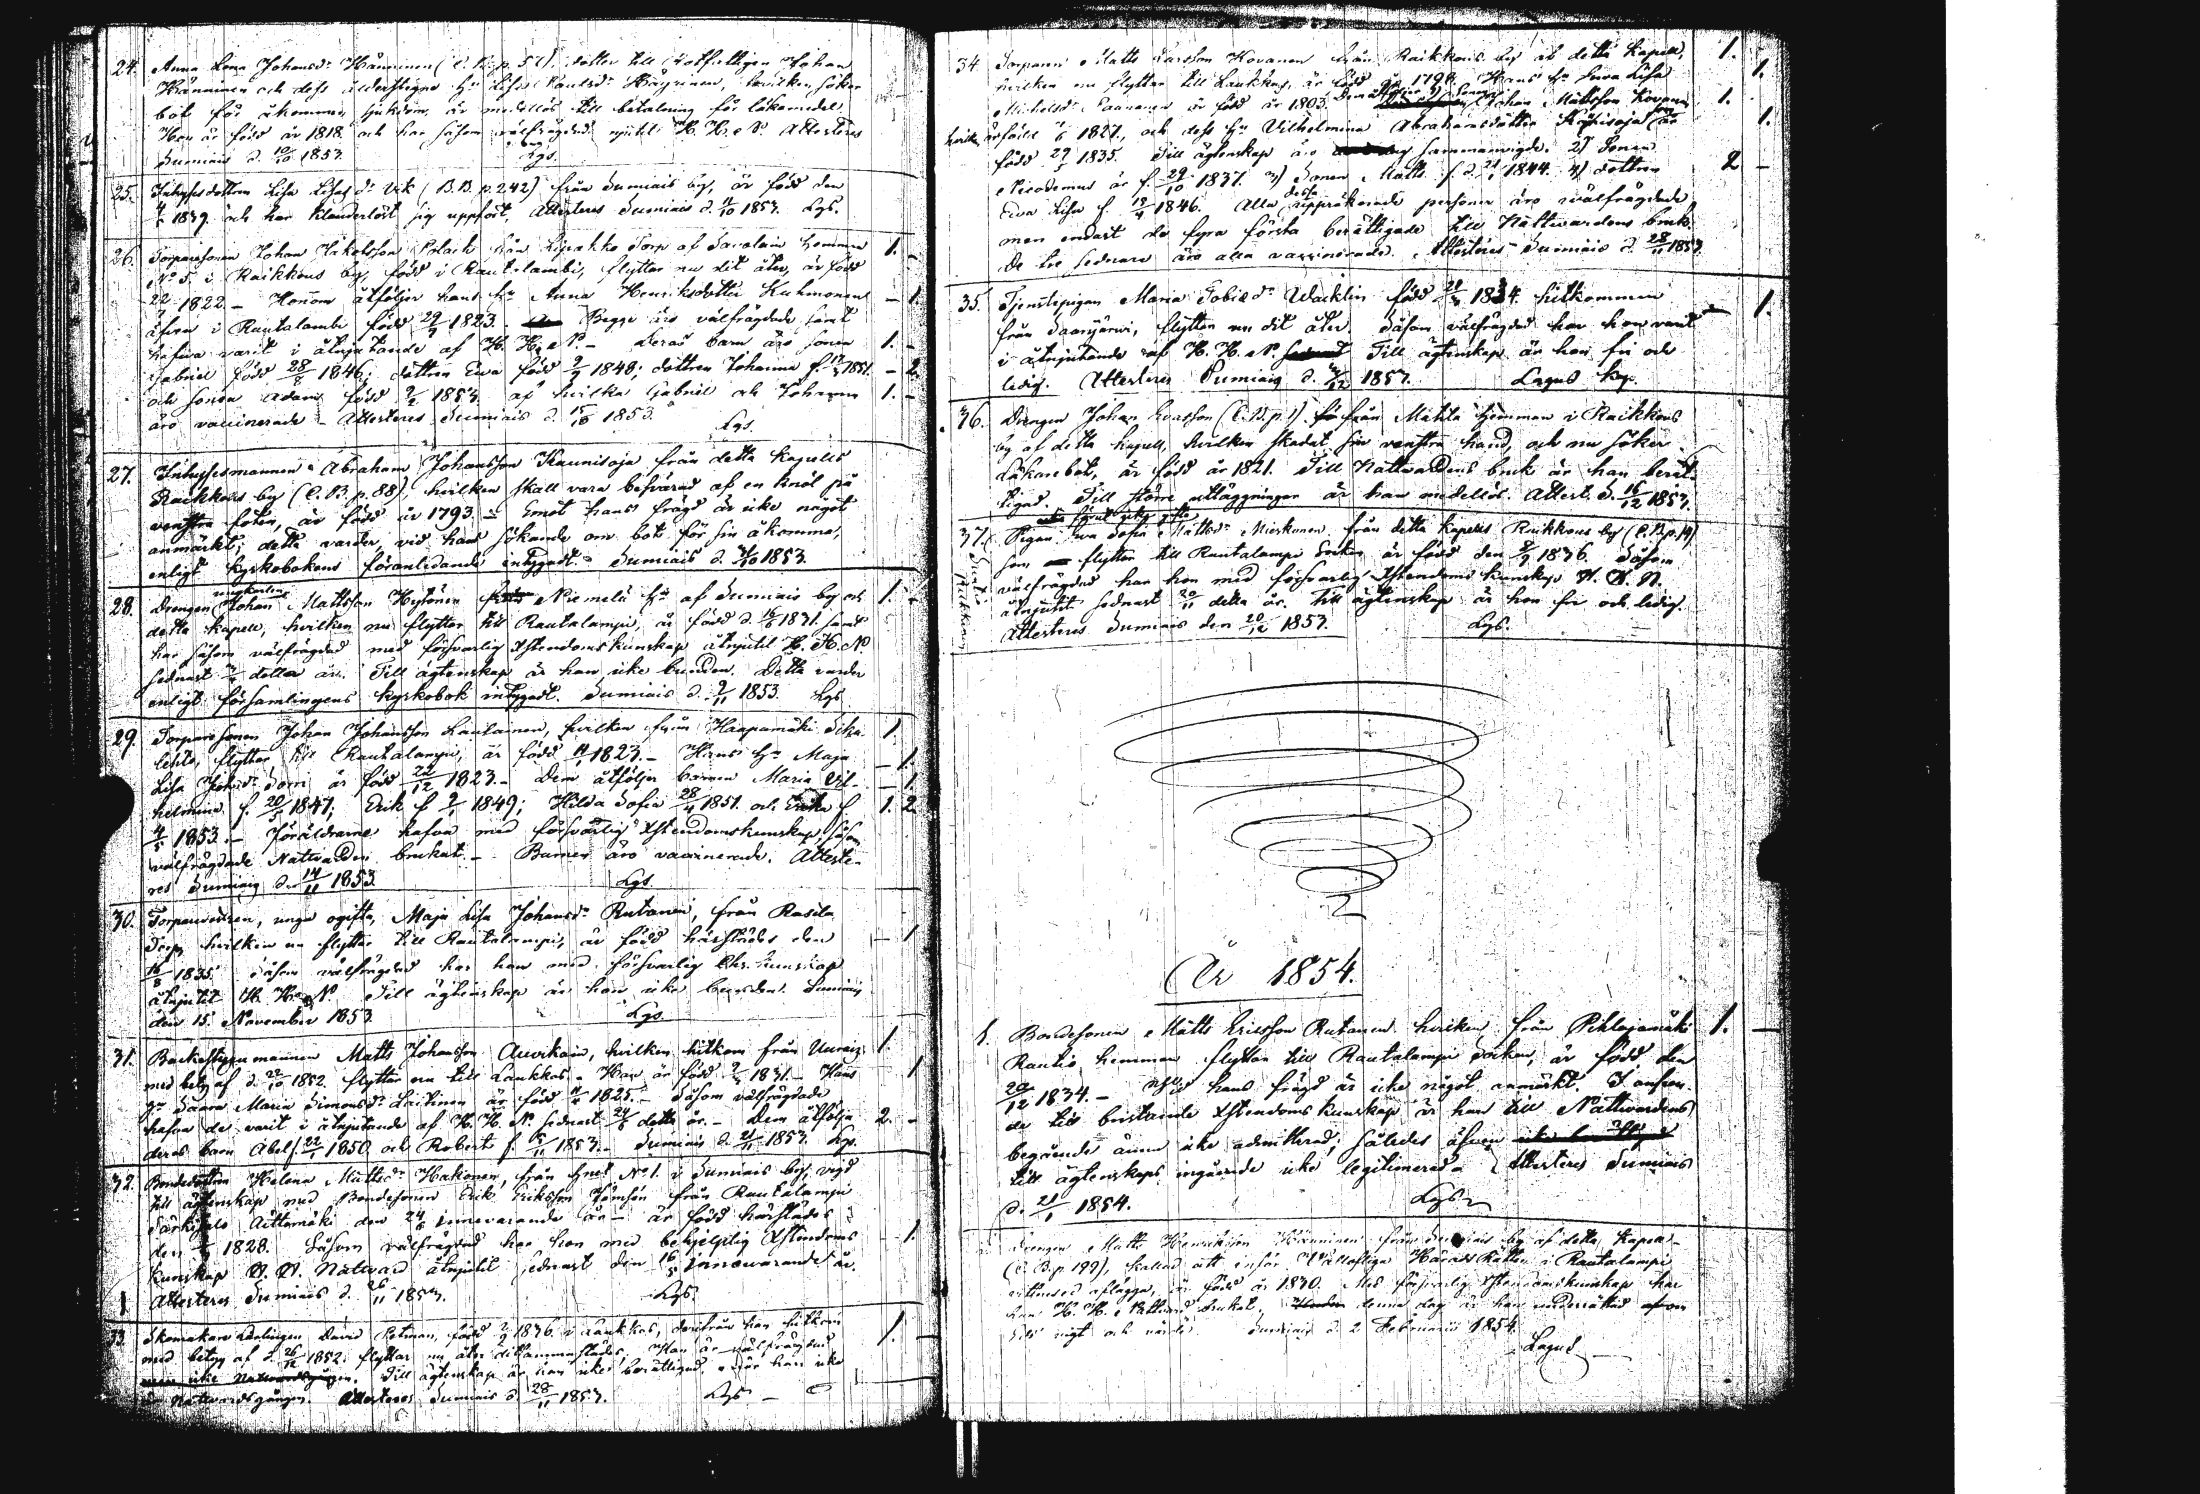 24. Anna Lena Johansd:r Hänninen (C.B. p. 51) dotter till Rotfattigen Johan
Hänninen och dess ålderstigne h:u Lisa Paulsd:r Häyrinen, hvilken söker
bot för åkommen sjukdom, är medellös till betalning för läkemedel
Hon är född år 1818 och har såsom välfrägdad njutit H. H. N. Attesteras
Sumiais d. 10/10 1853. Lgs.
25. Inhysesdottren Lisa Lisasd:r Vik (B.B. p. 242) från Sumiais by, är född den
1839 och har klanderlöst sig uppfört, Attesteras Sumiais d. 11/10 1853. Lgs.
26. Torparesonen Johan Jakobsson från Torp af Savolain hemman 1. -
N:o 5 i Raikkous by, född i Rautalambi, flyttar nu dit åter, är född
22/7 1822. - Honom åtföljer hans h:u Anna Henriksdotter Kuhmonen - 1.
äfven i Rautalambi född 29/ 1823. Begge äro välfrägdade samt
hafva varit i åtnjutande af H. H. N. - Deras barn äro sonen 1. -
Gabriel född 28/8 1846; dottren Eva född 2/ 1848; dottren Johanna f. 1851. - 2.
och sonen Adam född 2/2 1853. af hvilka Gabriel och Johanna 1. -
äro vaccinerade - Attesteras Sumiais d. 15/10 1853. Lgs.
27. Inhysesmannen Abraham Johansson Kaunisoja från detta Kapells
Raikkous by (C.B. p. 88), hvilken skall vara besvärad af en knöl på
venstra foten, är född år 1793. - Emot hans frägd är icke något
anmärkt; detta varder, vid hans sökande om bot för sin åkomma,
enligt kyrkobokens föranledande intygadt. Sumiais d. 31/10 1853.
28. Drengen ungkarlen Johan Mattsson Hytönen Niemelä h:n af Sumiais by och 1. -
detta kapell, hvilken nu flyttar till Rautalampi, är född d. 16/ 1831. samt
har såsom välfrägdad med försvarlig Xstendomskunskap åtnjutit H. H. N
sednast detta år. Till ägtenskap är han icke bunden. Detta varder
enligt församlingens kyrkobok intygadt. Sumiais d. 9/11 1853. Lgs
29. Torparesonen Johan Johansson Lautainen, hvilken från Haapamäki 1
flyttar till Rautalampi, är född 1823. - Hans h:u Maja - 1.
Lisa Johsd:r är född 22/12 1823. - Dem åtföljer barnen Maria Vil- - 1
helmina f. 20/5 1847; Erik f 2/ 1849; Hilda Sofia 28/4 1851. och Erika f 1. 2
4/5 1853. - Föräldrarne hafva med försvarlig Xstendomskunskap såsom
välfrägdade Nattvarden brukat. - Barnen äro vaccinerade. Atteste-
ras Sumiais d. 14/11 1853. Lgs
30. ogifta, Maja Lisa Johansd:r Rutanen, från Rasila
Torp hvilken nu flyttar till Rautalampi, är född härstädes den - 1
16/8 1835. Såsom välfrägdad har hon med försvarlig Chr. kunskap
åtnjutit H. H. N. Till ägtenskap är hon icke bunden. Sumiais
den 15 November 1853 Lgs.
31. Matts Johansson Auvikain, hvilken hitkom från 1.
med betyg af d. 22/10 1852. flyttar nu till Laukkas. Han är född 2/ 1831. - Hans 1
h:u Saara Maria Simonsd:r Laitinen är född 1825. - Såsom välfrägdade
hafva de varit i åtnjutande af H. H. N. sednast 24/ detta år. - Dem åtfölja 2. -
deras barn Abel f. 22/ 1850 och Robert f. 1853. - Sumiais d. 21/11 1853. Lgs.
32. Bondedottren Helena Mattsd:r Hakonen, från hem:t N:o 1. i Sumiais by, vigd
till ägtenskap med Bondesonen Erik Eriksson Jämsén från Rautalampi
Särkisalo Aittomäki den 24/ innevarande år - är född härstädes
den 1828. Såsom välfrägdad har hon med behjelplig Xstendoms - 1.
kunskap H. H. Nattvard åtnjutit sednast den 16/ innevarande år.
Attesteras Sumiais d. 26/11 1853. Lgs
33. Skomakare Lärlingen David född 1836 i Laukkas, derifrån han hitkom 1. -
med betyg af d. 26/ 1852. flyttar nu åter ditsammastädes. Han är välfrägdad
Till ägtenskap är han icke berättigad, enär han icke
Nattvardsgången. Attesteras Sumiais d. 28/11 1853. Lgs -
34 Torparen Matts Larsson Kovanen från Raikkous by af detta Kapell, 1.
hvilken nu flyttar till Laukkas, är född år 1798. Hans h:u Eva Lisa 1.
Michelsd:r Paananen är född år 1803. Dem åtfölja 1) Sonen Johan Mattsson Kovanen 1.
hvilken är född 1827, och dess h:u Vilhelmina Abrahamsdotter Kaunisoja är 1.
född 29/ 1835. Till ägtenskap äro sammanvigde. 2) Sonen
Nicodemus är f. 29/10 1837. 3) Sonen Matts f. d. 21/ 1844. 4) dottren 2 -
Eva Lisa f. 18/4 1846. Alla dessa uppräknade personer äro välfrägdade
men endast de fyra första berättigade till Nattvardens bruk.
De tre sednare äro alla vaccinerade. Attesteras Sumiais d. 28/11 1853.
35. Tjenstepigan Maria Tobiæd:r Wacklin född 21/ 1834. hitkommen 1.
från Saarijärvi, flyttar nu dit åter. Såsom välfrägdad har hon varit
i åtnjutande af H. H. N. Till ägtenskap är hon fri och
ledig. Attesteras Sumiais d. /12 1853. Lagus
36. Drengen Johan Evasson (C.B. p. 1) från Mahla hemman i Raikkous
by af detta kapell, hvilken skadat sin venstra hand, och nu söker
Läkarebot, är född år 1821. Till Nattvardens bruk är han berät-
tigad. Till större utläggningar är han medellös. Attest. d. 16/12 1853.
37. Pigan Eva Sofia Mattsd:r Minkinen från detta kapells Raikkous by (C.B. p. 14)
som flyttar till Rautalampi Socken är född den 1836. Såsom
välfrägdad har hon med försvarlig Xstendoms kunskap H. H. N.
åtnjutit sednast 20/11 detta år. Till ägtenskap är hon fri och ledig.
Attesteras Sumiais den 20/12 1853. Lgs.
År 1854.
1. Bondesonen Matts Ericsson Rutanen hvilken från Pihlajamäki 1. -
Rautio hemman flyttar till Rautalampi socken, är född den
20/12 1834. - Vid hans frägd är icke något anmärkt. I anseen-
de till bristande Xstendoms kunskap är han till Nattvardens
begående ännu icke admitterad; således äfven
till ägtenskaps ingående icke legitimerad. Attesteras Sumiais
d. 21/1 1854. Lgs
Drengen Matts Henriksson Hänninen från Sumiais by af detta Kapell
(C.B. p. 199), kallad att inför Vällofliga HäradsRätten i Rautalampi
vittnesed aflägga, är född år 1830. Med försvarlig Xstendomskunskap har
han H. H. Nattvard brukat. denna dag är han
Sumiais d. 2 Februarii 1854.
Lagus